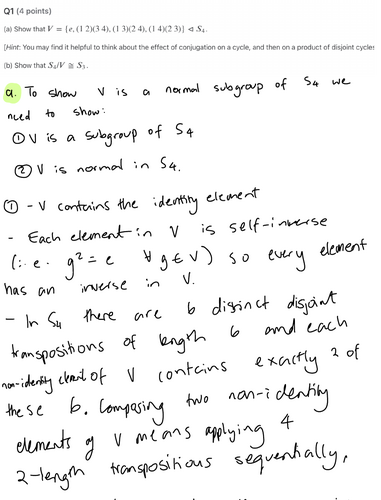 Q1 (4 points)
(a) Show that V = {e, (1 2)(3 4), (1 3)(2 4), (1 4)(2 3)} ⊲ S₄.
[Hint: You may find it helpful to think about the effect of conjugation on a cycle, and then on a product of disjoint cycles
(b) Show that S₄/V ≅ S₃.
a. To show V is a normal subgroup of S₄ we
need to show:
① V is a subgroup of S₄
② V is normal in S₄.
① - V contains the identity element
- Each element in V is self-inverse
(i.e. g² = e ∀ g ∈ V) so every element
has an inverse in V.
- In S₄ there are 6 distinct disjoint
transpositions of length 6 and each
non-identity element of V contains exactly 2 of
these 6. Composing two non-identity
elements of V means applying 4
2-length transpositions sequentially,